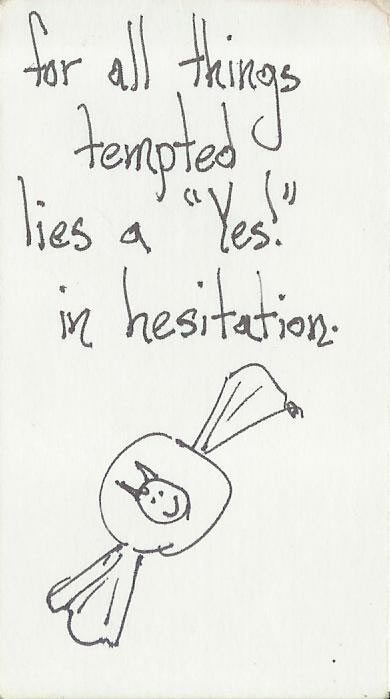 for all things
tempted
lies a "Yes!"
in hesitation.